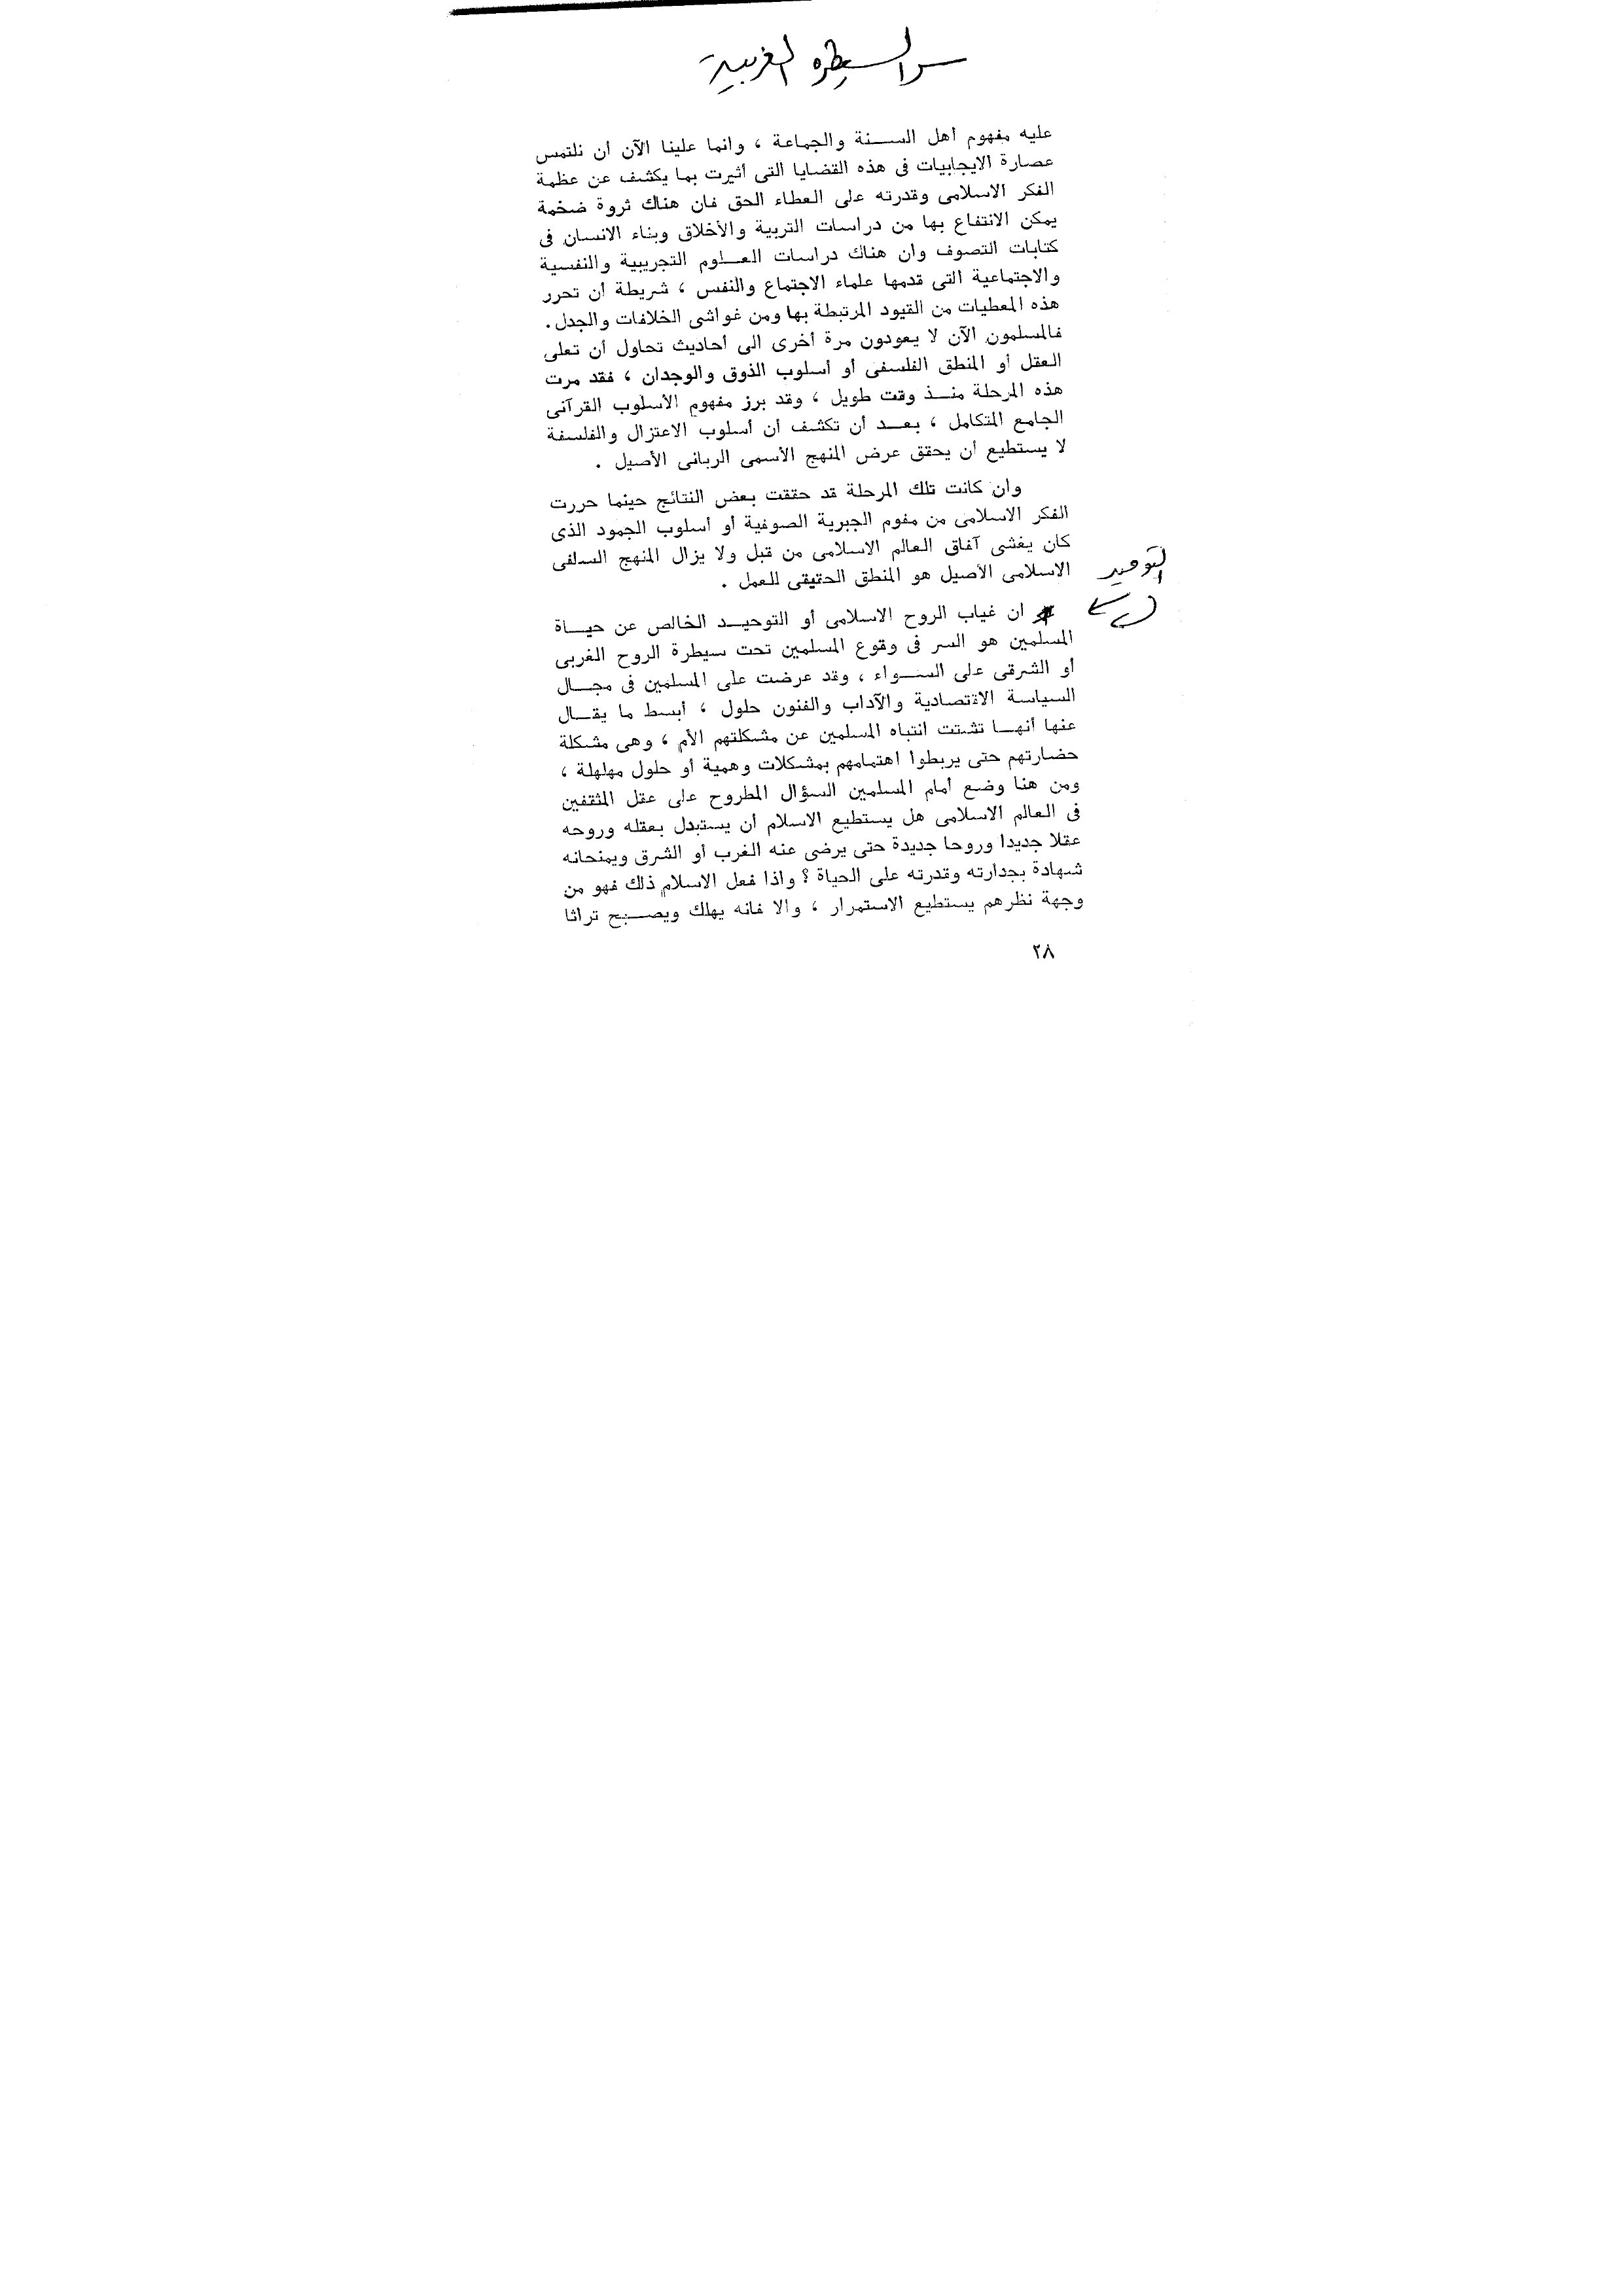 سر السيطره الغربية
عليه مفهوم أهل الســنة والجماعة ، وانما علينا الآن أن نلتمس
عصارة الايجابيات فى هذه القضايا التى أثيرت بما يكشف عن عظمة
الفكر الاسلامى وقدرته على العطاء الحق فان هناك ثروة ضخمة
يمكن الانتفاع بها من دراسات التربية والأخلاق وبناء الانسان فى
كتابات التصوف وان هناك دراسات العــلوم التجريبية والنفسية
والاجتماعية التى قدمها علماء الاجتماع والنفس ، شريطة أن تحرر
هذه المعطيات من القيود المرتبطة بها ومن غواشى الخلافات والجدل .
فالمسلمون الآن لا يعودون مرة أخرى الى أحاديث تحاول أن تعلى
العقل أو المنطق الفلسفى أو أسلوب الذوق والوجدان ، فقد مرت
هذه المرحلة منــذ وقت طويل ، وقد برز مفهوم الأسلوب القرآنى
الجامع المتكامل ، بعــد أن تكشف أن أسلوب الاعتزال والفلسفة
لا يستطيع أن يحقق عرض المنهج الأسمى الربانى الأصيل .
وان كانت تلك المرحلة قد حققت بعض النتائج حينما حررت
الفكر الاسلامى من مفوم الجبرية الصوفية أو أسلوب الجمود الذى
كان يغشى آفاق العالم الاسلامى من قبل ولا يزال المنهج السلفى
الاسلامى الأصيل هو المنطق الحقيقى للعمل .
التوحيد
ان غياب الروح الاسلامى أو التوحيــد الخالص عن حيــاة
المسلمين هو السر فى وقوع المسلمين تحت سيطرة الروح الغربى
أو الشرقى على الســواء ، وقد عرضت على المسلمين فى مجــال
السياسة الاقتصادية والآداب والفنون حلول ، أبسط ما يقــال
عنها أنهــا تشتت انتباه المسلمين عن مشكلتهم الأم ، وهى مشكلة
حضارتهم حتى يربطوا اهتمامهم بمشكلات وهمية أو حلول مهلهلة ،
ومن هنا وضع أمام المسلمين السؤال المطروح على عقل المثقفين
فى العالم الاسلامى هل يستطيع الاسلام أن يستبدل بعقله وروحه
عقلا جديدا وروحا جديدة حتى يرضى عنه الغرب أو الشرق ويمنحانه
شهادة بجدارته وقدرته على الحياة ؟ واذا فعل الاسلام ذلك فهو من
وجهة نظرهم يستطيع الاستمرار ، والا فانه يهلك ويصــبح تراثا
٢٨